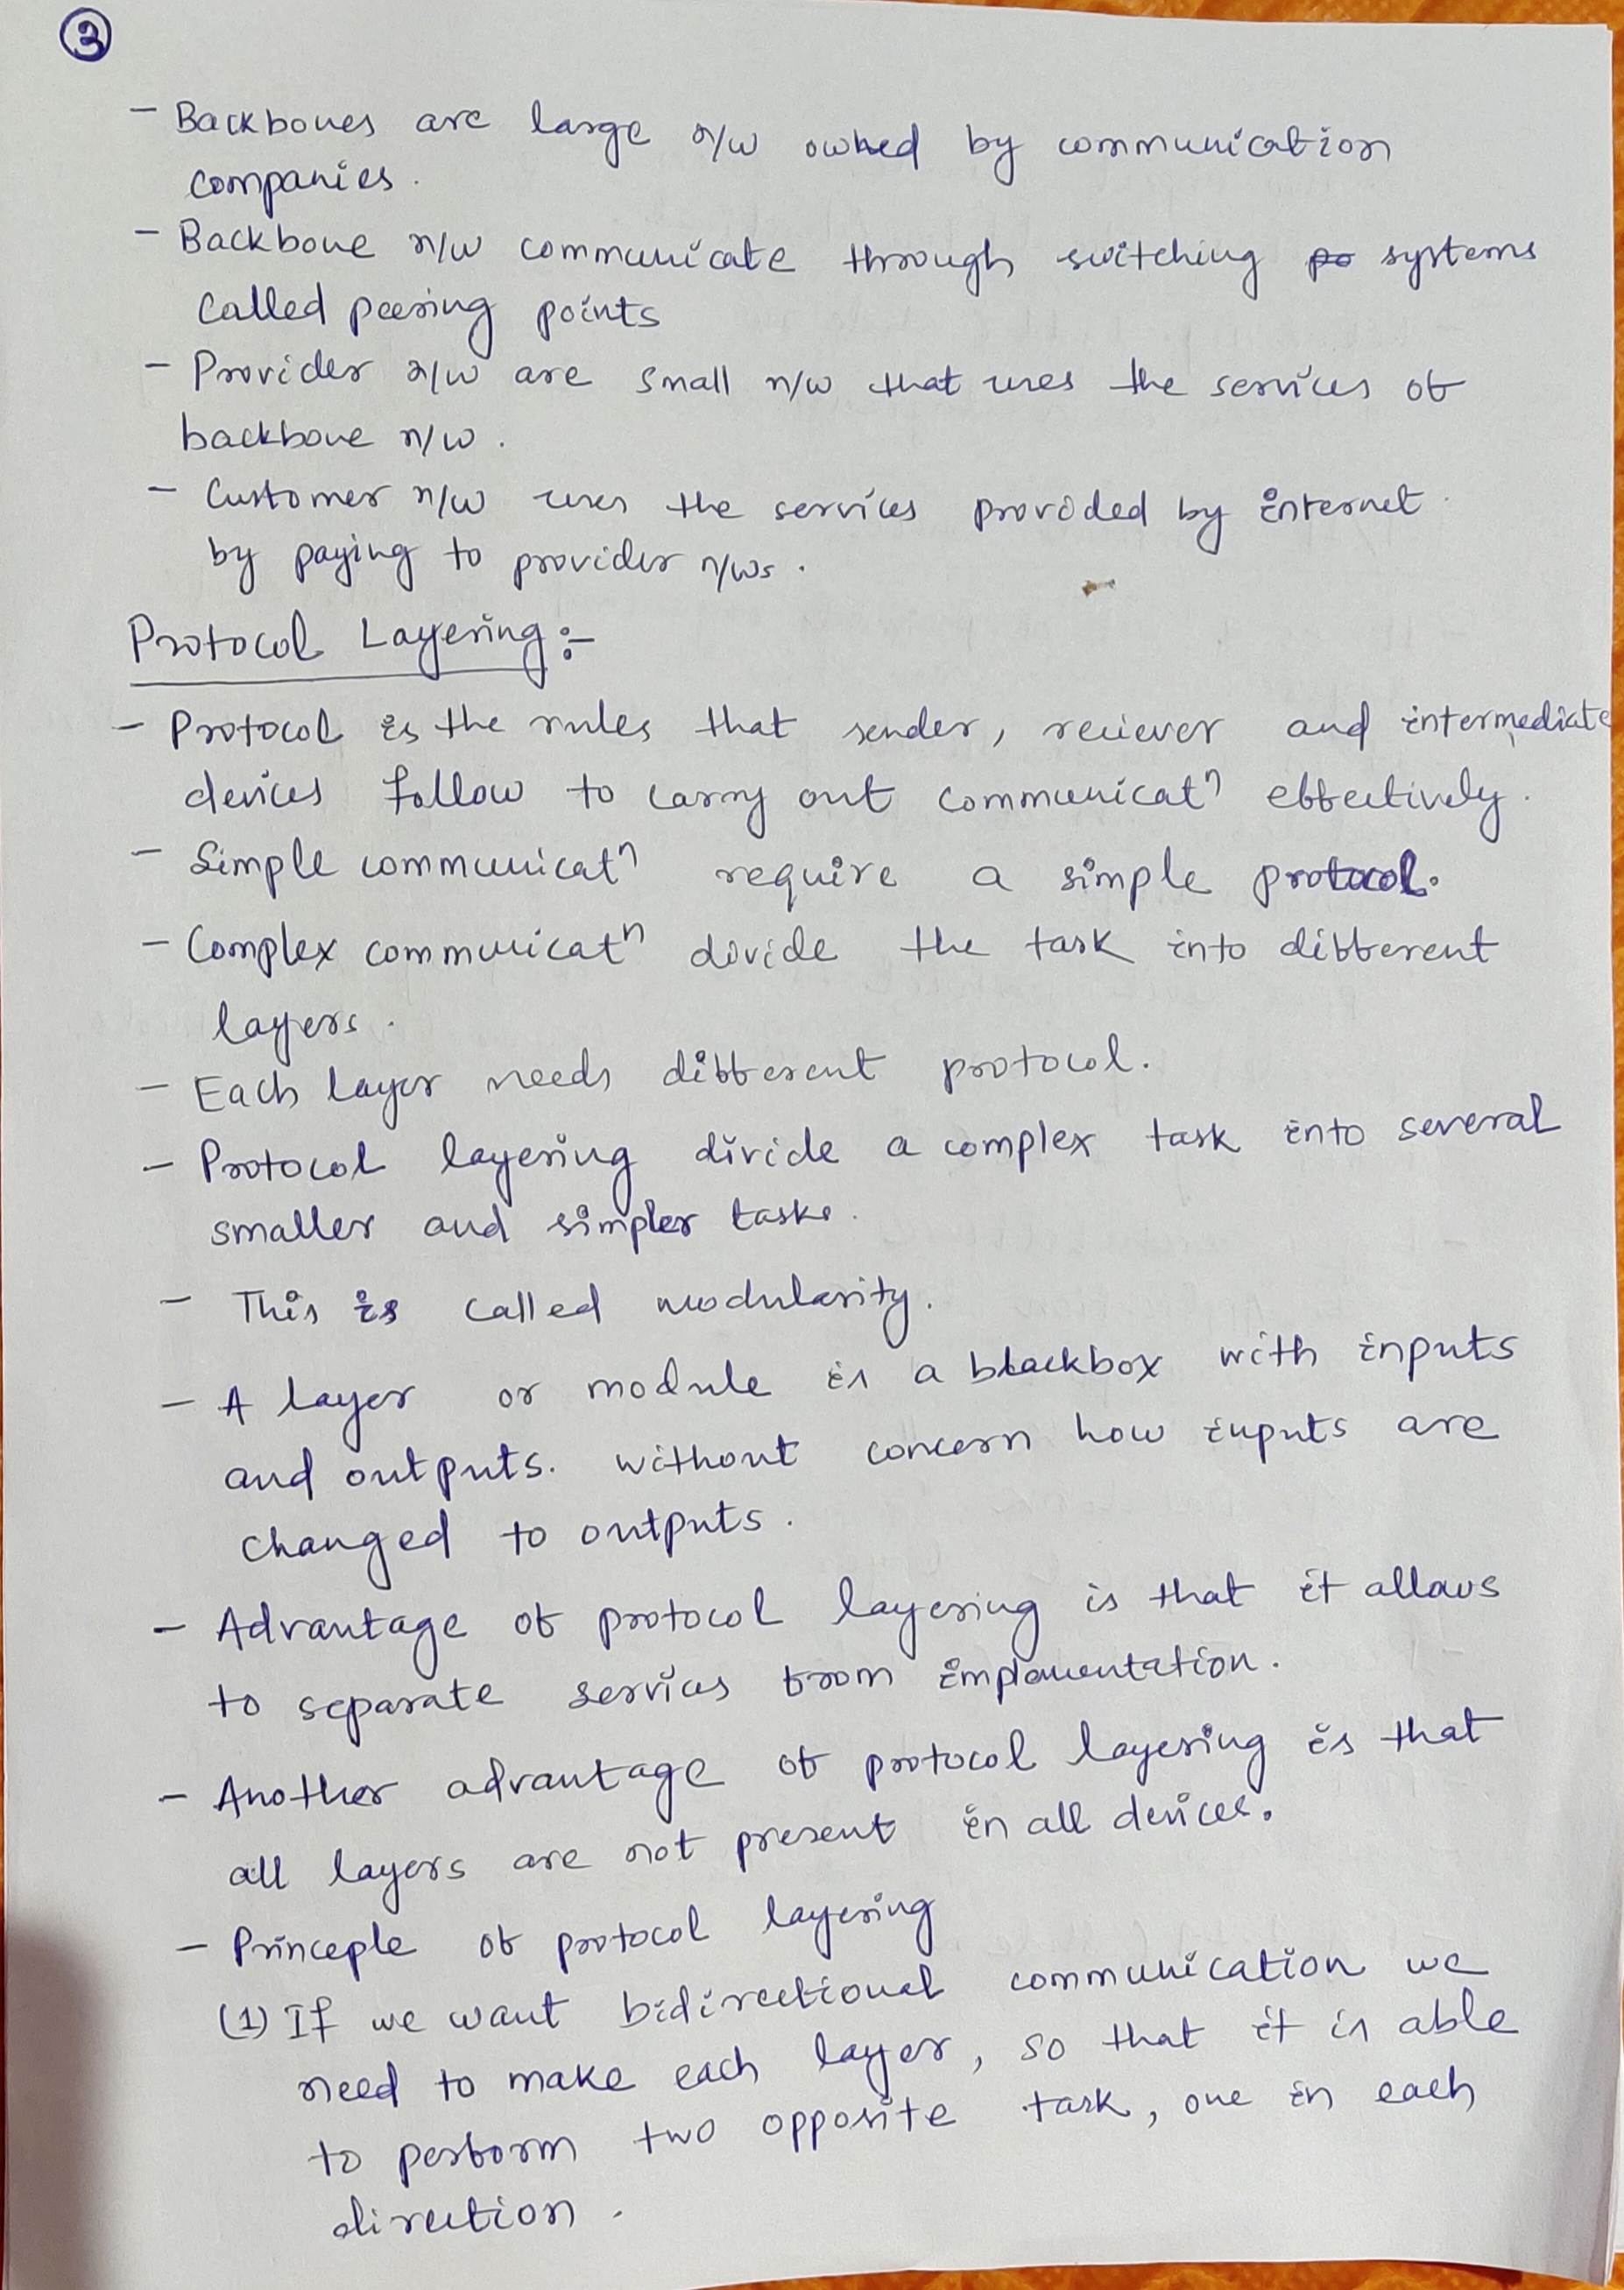 3
- Backbones are large n/w owned by communication
companies.
- Backbone n/w communicate through switching po systems
called peering points
- Provider n/w are small n/w that uses the services of
backbone n/w.
- Customer n/w uses the services provided by internet
by paying to provider n/ws.
Protocol Layering:-
- Protocol is the rules that sender, reciever and intermediate
devices follow to carry out communicatⁿ effectively.
- Simple communicatⁿ require a simple protocol.
- Complex communicatⁿ divide the task into different
layers.
- Each layer needs different protocol.
- Protocol layering divide a complex task into several
smaller and simpler tasks.
- This is called modularity.
- A layer or module is a blackbox with inputs
and outputs. without concern how inputs are
changed to outputs.
- Advantage of protocol layering is that it allows
to separate services from implementation.
- Another advantage of protocol layering is that
all layers are not present in all devices.
- Principle of protocol layering
(1) If we want bidirectional communication we
need to make each layer, so that it is able
to perform two opposite task, one in each
direction.